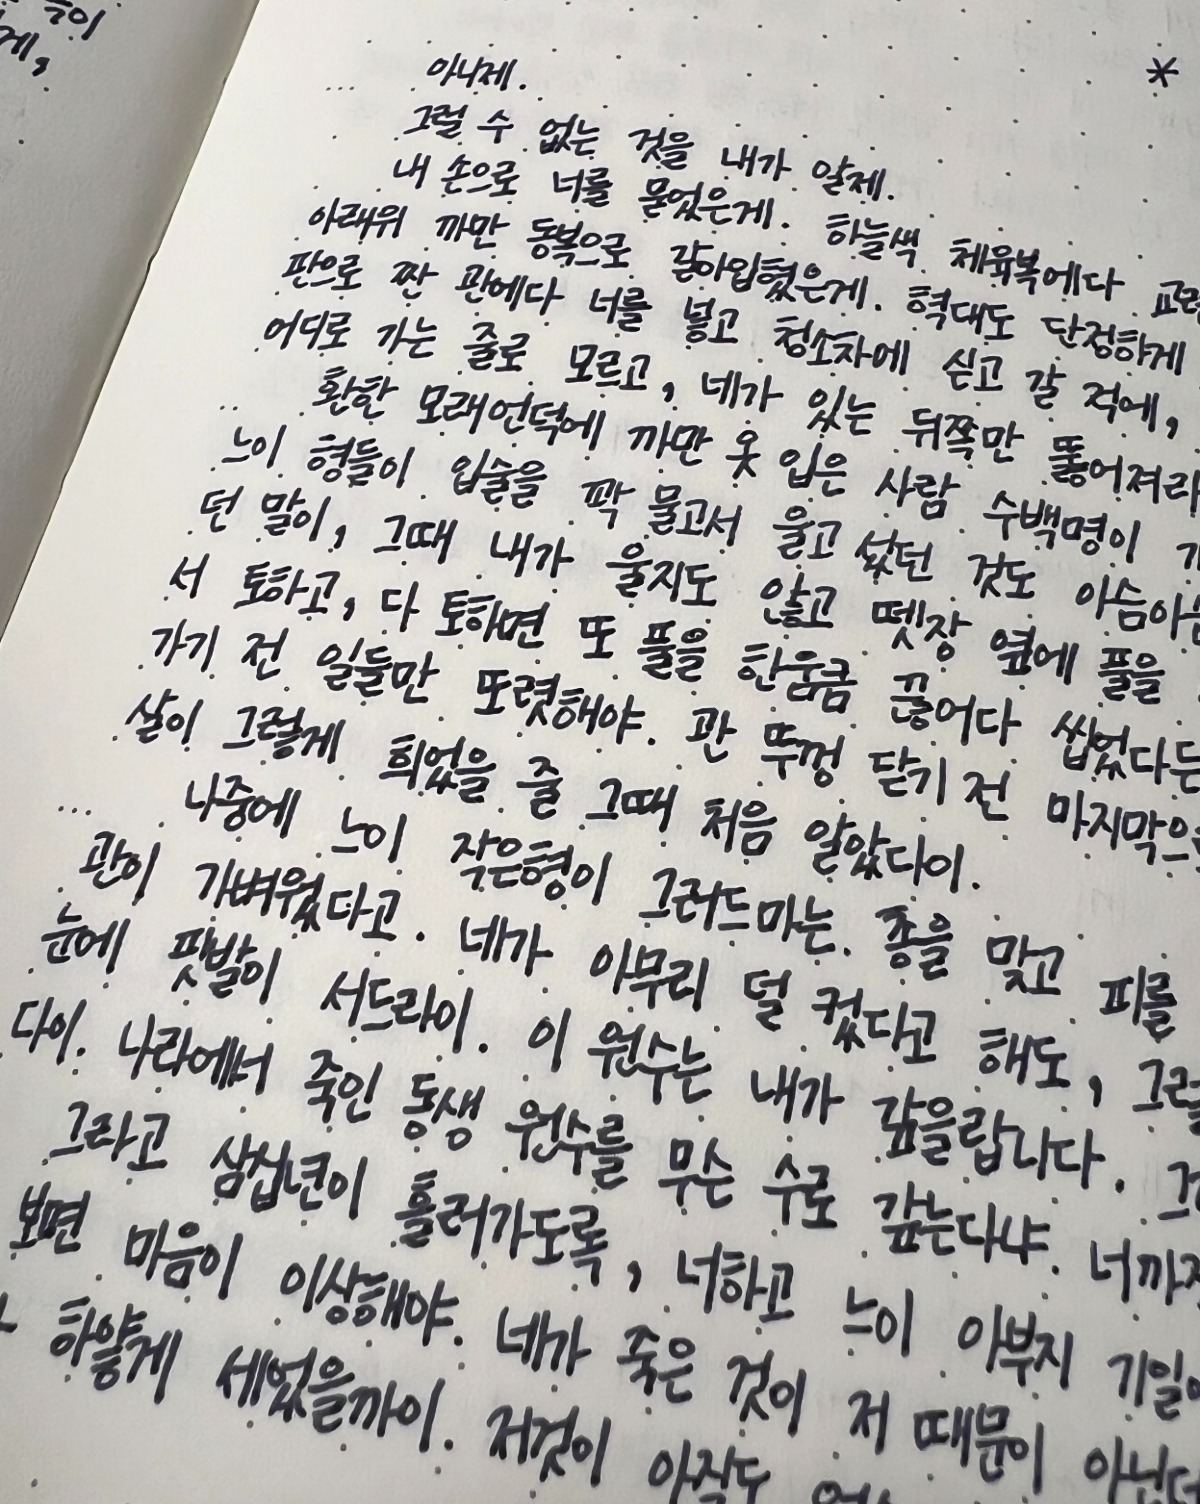 는이
게,
*
아니제.
그럴 수 없는 것을 내가 알제.
내 손으로 너를 묻었은게. 하늘색 체육복에다 교련
아래위 까만 동복으로 갈아입혔은게. 혁대도 단정하게
판으로 짠 관에다 너를 넣고 청소차에 싣고 갈 적에,
어디로 가는 줄로 모르고, 네가 있는 뒤쪽만 뚫어져라
환한 모래언덕에 까만 옷 입은 사람 수백명이
느이 형들이 입술을 꽉 물고서 울고 섰던 것도 아슴아슴
던 말이, 그때 내가 울지도 않고 뗏장 옆에 풀을
서 토하고, 다 토하면 또 풀을 한움큼 끊어다 씹었다든
가기 전 일들만 또렷해야. 관 뚜껑 닫기 전 마지막으
살이 그렇게 희었을 줄 그때 처음 알았다이.
나중에 느이 작은형이 그러드마는. 총을 맞고 피를
관이 가벼웠다고. 네가 아무리 덜 컸다고 해도, 그럴
눈에 핏발이 서드라이. 이 원수는 내가 갚을랍니다. 그
다이. 나라에서 죽인 동생 원수를 무슨 수로 갚는다냐. 너까지
그라고 삼십년이 흘러가도록, 너하고 느이 아부지 기일에
보면 마음이 이상해야. 네가 죽은 것이 저 때문이 아닌데
하얗게 세었을까이. 저것이 아직도